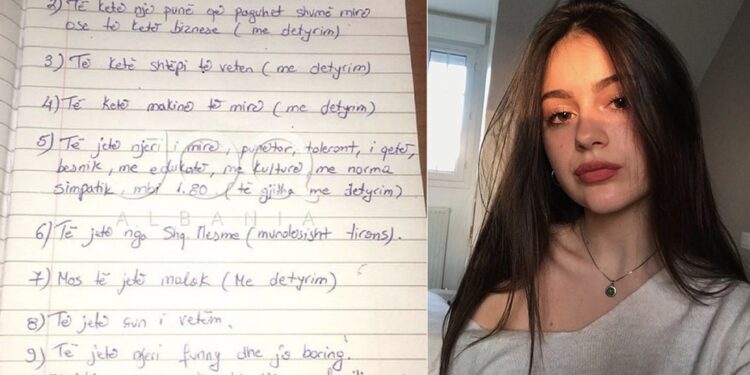 2) Të ketë një punë që paguhet shumë mirë
ose të ketë biznese ( me detyrim )
3) Të ketë shtëpi të veten ( me detyrim )
4) Të ketë makinë të mirë ( me detyrim )
5) Të jetë njëri i mirë, punëtor, tolerant, i qetë,
besnik, me edukatë, me kulturë me norma
simpatik, mbi 1.80 ( të gjitha me detyrim )
ALBANIA
6) Të jetë nga Shq. Mesme ( mundësisht tirons ).
7) Mos të jetë malok ( Me detyrim )
8) Të jetë çun i vetëm.
9) Të jetë njëri funny dhe jo boring.